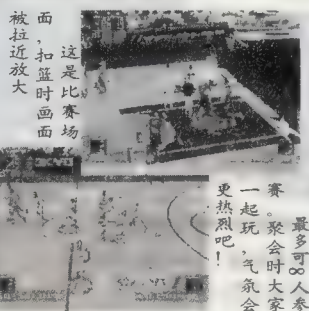 这是比赛场
面，扣篮时画面
被拉近放大
最多可8人参
赛。聚会时大家
一起玩，气氛会
更热烈吧！